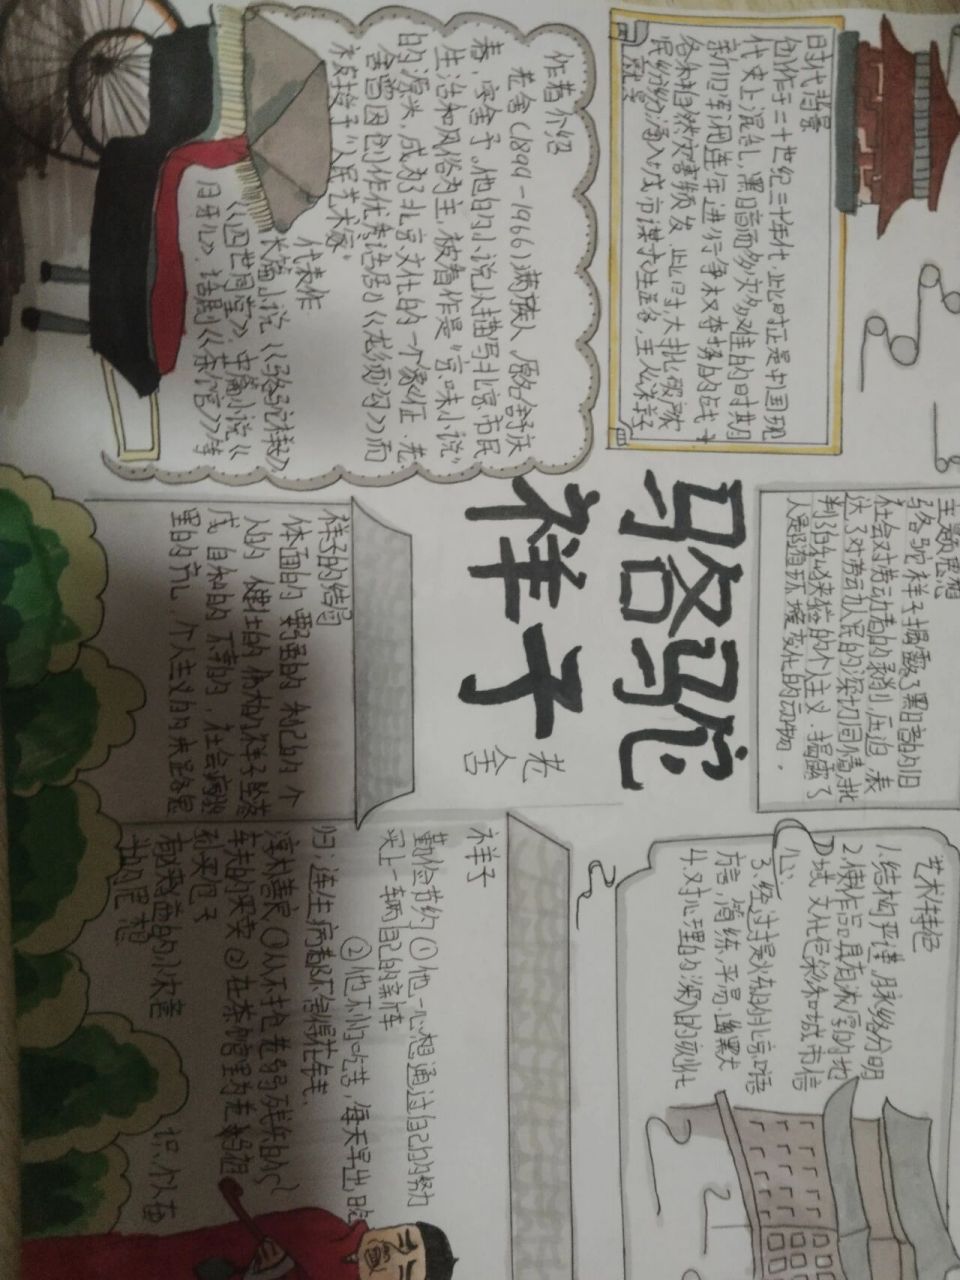 时代背景
创作于二十世纪三十年代,此时正是中国现
代史上混乱,黑暗而多灾多难的时期
新旧军阀连年进行争权夺势的战争
各种自然灾害频发,此时,大批
民纷纷涌入城市谋求生路,主人公祥子
作者介绍
老舍(1899-1966)满族人,原名舒庆
春,字舍予。他的小说以描写北京市民
生活和风俗为主,被看作是"京味小说"
的源头,成为北京文化的一个象征。老
舍曾因创作优秀话剧《龙须沟》而
被授予"人民艺术家"
代表作
长篇小说《骆驼祥子》
《四世同堂》中篇小说《
月牙儿》话剧《茶馆》等
骆驼
祥子
老舍
主题思想
骆驼祥子揭露了黑暗的旧
社会对劳动者的剥削,压迫,表
达了对劳动人民的深切同情,批
判了
的个人主义,揭露了
人是
的动物。
祥子的结局
体面的 要强的 利己的 个
人的 健壮的 伟大的祥子 堕落
成 自私的 不幸的,社会病胎
里的产儿,个人主义的末路鬼
艺术特色
1.结构严谨,脉络分明
2.使作品具有浓厚的地
域文化色彩和城市信
心
3.经过提炼的北京口语
语言,简练,平易,幽默大
4.对心理的深入的刻
祥子
勤俭节约 ①他一心想通过自己的努力
买上一辆自己的新车
②他不怕吃苦,每天早出晚
归;连生病都不舍得花钱。
淳朴善良 ①从不抢老弱残的
车夫的买卖 ②在茶馆里为老马祖
孙买包子
的小农意
识 个人奋
斗的思想